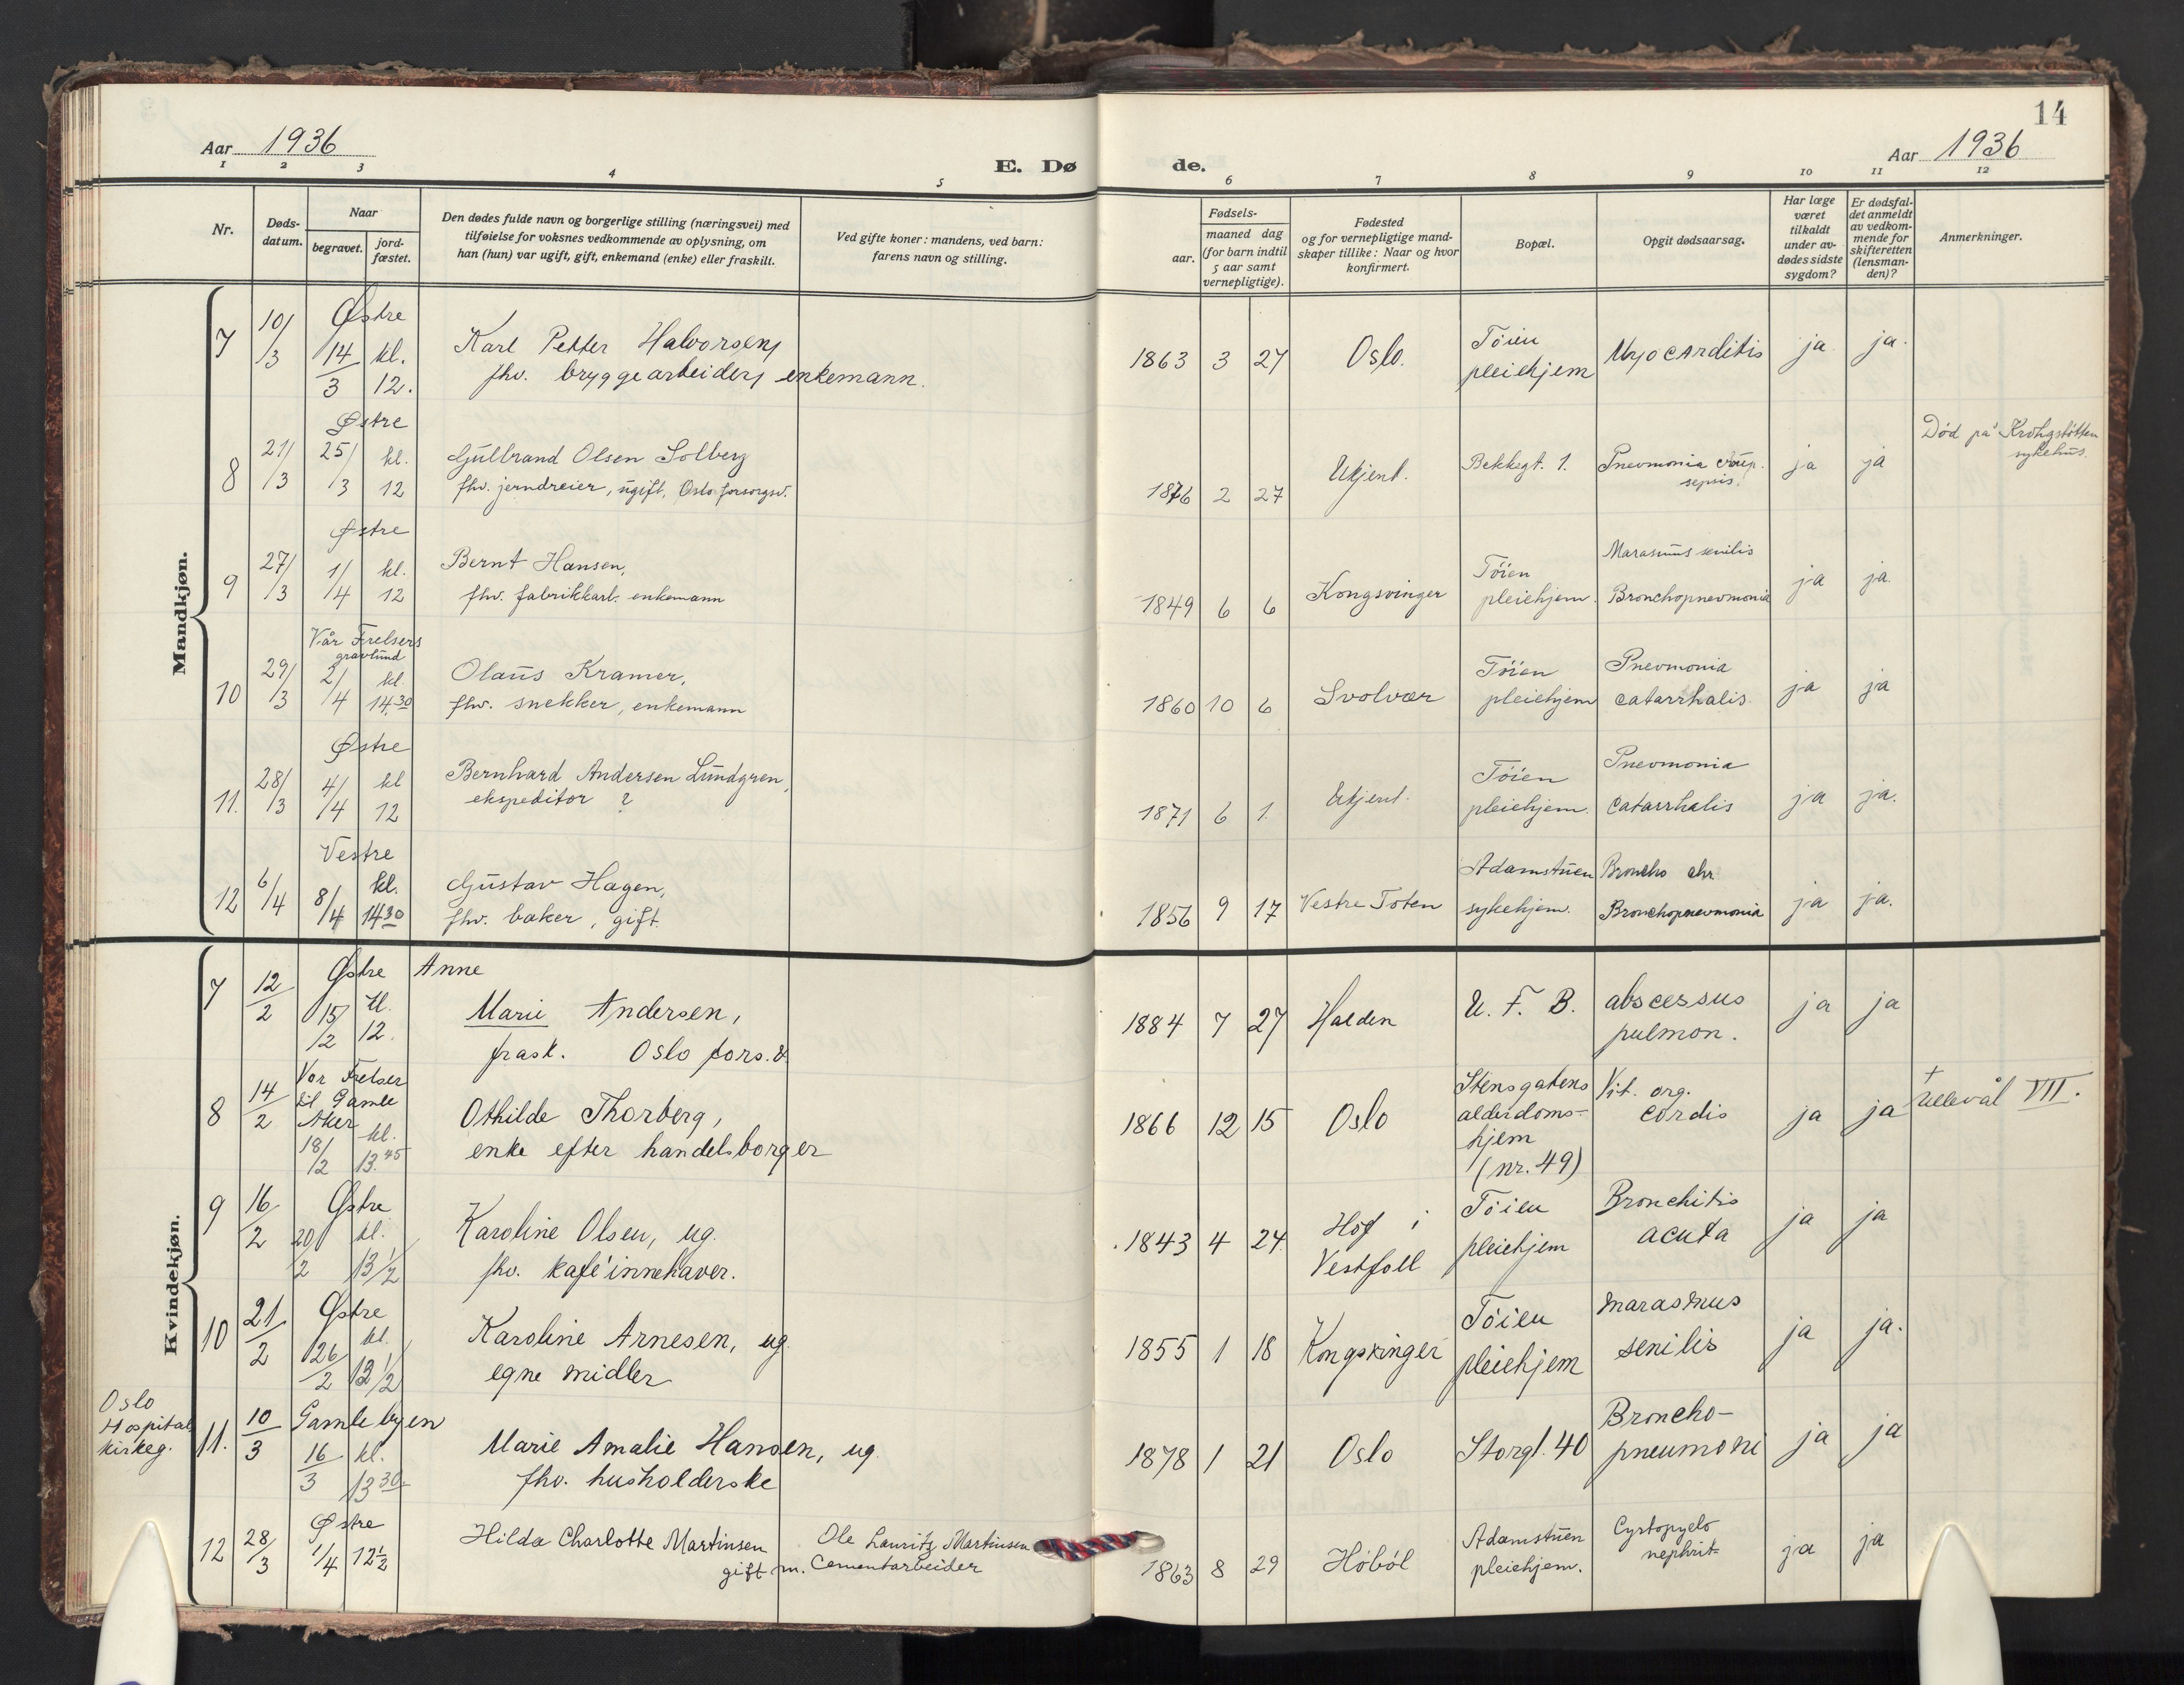 14
Aar 1936
E. Dø de.
Aar 1936
1 2 3 4 5 6 7 8 9 10 11 12
Nr.
Døds-
datum.
Naar
begravet.
jord-
fæstet.
Den dødes fulde navn og borgerlige stilling (næringsvei) med
tilføielse for voksnes vedkommende av oplysning, om
han (hun) var ugift, gift, enkemand (enke) eller fraskilt.
Ved gifte koner: mandens, ved barn:
farens navn og stilling.
Fødsels-
aar.
maaned dag
(for barn indtil
5 aar samt
vernepligtige).
Fødested
og for vernepligtige mand-
skaper tillike: Naar og hvor
konfirmert.
Bopæl.
Opgit dødsaarsag.
Har læge
været
tilkaldt
under av-
dødes sidste
sygdom?
Er dødsfal-
det anmeldt
av vedkom-
mende for
skifteretten
(lensman-
den)?
Anmerkninger.
Mandkjøn.
7 10/3 Østre 14/3 kl. 12.
Karl Petter Halvorsen,
fhv. bryggearbeider, enkemann.
1863 3 27 Oslo.
Tøien
pleiehjem
Myocarditis ja ja.
8 21/3 Østre 25/3 kl. 12
Gulbrand Olsen Solberg
fhv. jerndreier, ugift, Oslo forsorgsv.
1876 2 27 Ukjent. Bekkegt. 1.
Pneumonia crup.
sepsis.
ja ja
Død på Krohgstøtten
sykehus.
9 27/3 Østre 1/4 kl. 12
Bernt Hansen,
fhv. fabrikkarb. enkemann
1849 6 6 Kongsvinger
Tøien
pleiehjem.
Marasmus senilis
Bronchopneumonia
ja ja.
10 29/3 Vår Frelsers
gravlund
2/4 kl. 14.30
Olaus Kramer,
fhv. snekker, enkemann
1860 10 6 Svolvær
Tøien
pleiehjem
Pneumonia
catarrhalis.
ja ja
11. 28/3 Østre 4/4 kl 12
Bernhard Andersen Lundgren,
ekspeditor ?
1871 6 1. Ukjent.
Tøien
pleiehjem.
Pneumonia
catarrhalis
ja ja.
12 6/4 Vestre 8/4 kl. 1430
Gustav Hagen,
fhv. baker, gift.
1856 9 17 Vestre Toten
Adamstuen
sykehjem.
Broncho chr.
Bronchopneumonia
ja ja.
Kvindekjøn.
7 12/2 Østre 15/2 kl. 12.
Anne
Marie Andersen,
frask. Oslo fors.v.
1884 7 27 Halden U. F. B.
abscessus
pulmon.
ja ja
8 14/2 Vor Frelser
til Gamle
Aker
18/2 kl. 13.45
Othilde Thorberg,
enke efter handelsborger
1866 12 15 Oslo
Stensgatens
alderdoms-
hjem
(nr. 49)
Vit. org.
cordis
ja ja
+
Ullevål VII.
9 16/2 Østre 20/2 kl. 13 1/2
Karoline Olsen, ug.
fhv. kafé innehaver.
1843 4 24.
Hof i
Vestfoll
Tøien
pleiehjem
Bronchitis
acuta
ja ja
10 21/2 Østre 26/2 kl. 13 1/2
Karoline Arnesen, ug.
egne midler
1855 1 18 Kongsvinger
Tøien
pleiehjem
Marasmus
senilis
ja ja.
Oslo
Hospital
kirkeg.
11. 10/3 Gamlebyen 16/3 kl. 13 30
Marie Amalie Hansen, ug.
fhv. husholderske
1878 1 21 Oslo Storgt. 40
Broncho-
pneumoni
ja ja
12 28/3 Østre 1/4 12 1/2
Hilda Charlotte Martinsen
gift m.
Ole Lauritz Martinsen
Cementarbeider
1863 8 29 Høbøl
Adamstuen
pleiehjem.
Cystopyelo
nephrit=
ja ja